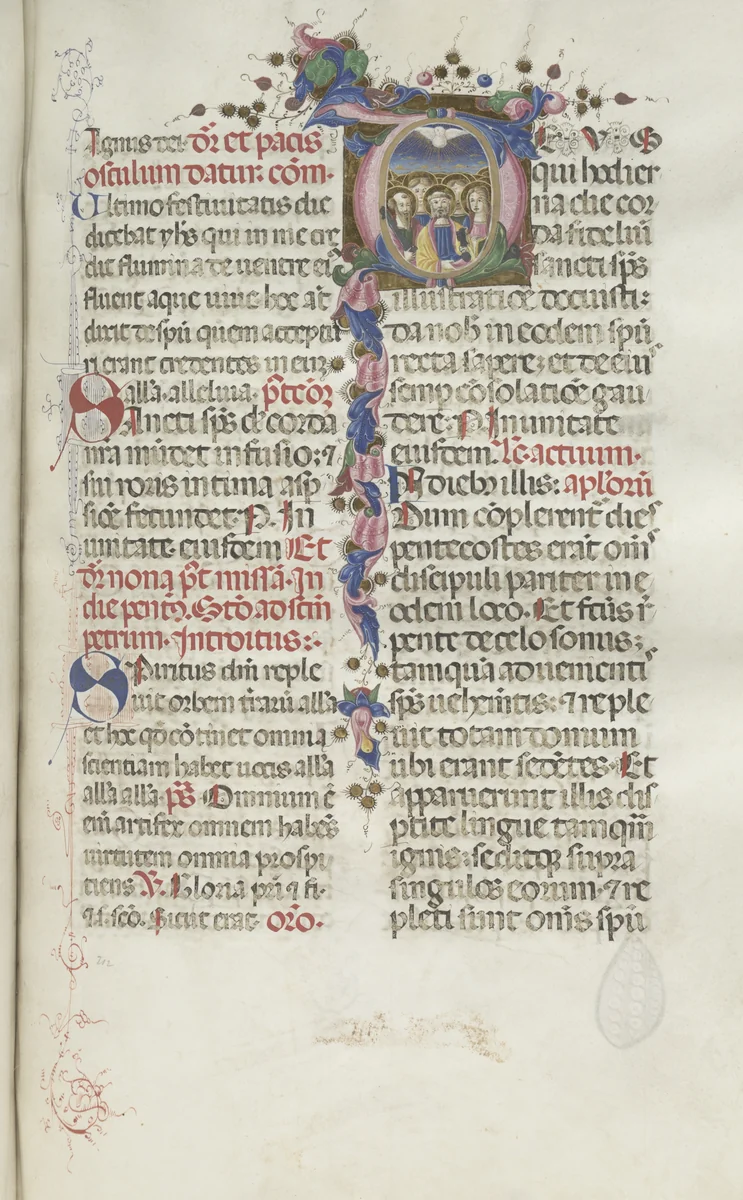 Agnus dei. dr̄ et pacis
osculum datur: cōm.
Ultimo festiuitatis die
dicebat yhs̄ qui in me cre
dit flumina de uentre eiꝰ
fluent aque uiue hoc aūt
dixit de spū quem accepturi
ri erant credentes in eū
alla. alleluia. pꝰt cōr
Sancti sps̄ dn̄e corda
nr̄a mūdet infusio: ⁊
sui roris intima asp̄
sione fecundet. P. In
unitate. eiusdem Et
dr̄ nona pꝰt missā. In
die pent̄. Stō ad sc̄m
petrum. Introitus:.
Spiritus dn̄i reple
uit orbem t̄rarū all̄a
et hoc qd̄ cōtinet omnia
scientiam habet uocis all̄a
all̄a all̄a. ps̄ Omnium ē
enī artifex omnem habēs
uirtutem omnia prospi
ciens. V. Gloria pr̄i ⁊ fi.
⁊ s. sc̄o. Sicut erat. or̄o.
DEVS
qui hodier
na die cor
da fideliū
sancti sps̄
illustratiōe docuisti:
da nob̄ in eodem spū
recta sapere: et de eiuˢ
semp cōsolatiōe gau
dere. P. In unitate
eiusdem. Lc̄. actuum.
In diebꝰ illis: aplōrū
Dum cōplerent̄ dieˢ
pentecostes erāt om̄ˢ
discipuli pariter in e
odem loco. Et fctūs ē
pente de celo sonus:
tamquā aduenientiˢ
sps̄ uehem̄tis: ⁊ reple
uit totam domum
ubi erant sedētes. Et
apparuerunt illis dis
ptite lingue tamqm̄
ignis: seditqꝫ supra
singulos eorum. ⁊ re
pleti sunt om̄s spū